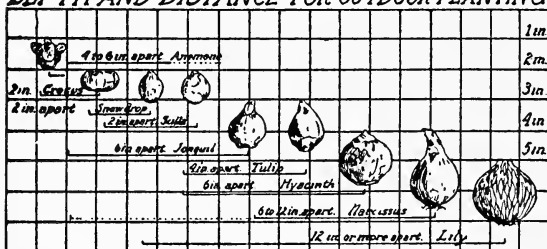 DEPTH AND DISTANCE FOR OUTDOOR PLANTING
1 in.
4 to 6 in. apart Anemone
2 in.
2 in. Crocus
3 in.
2 in. apart Snowdrop
2 in. apart Scilla
4 in.
6 in. apart Jonquil
5 in.
4 in. apart Tulip
6 in. apart Hyacinth
6 to 12 in. apart. Narcissus
12 in. or more apart. Lily